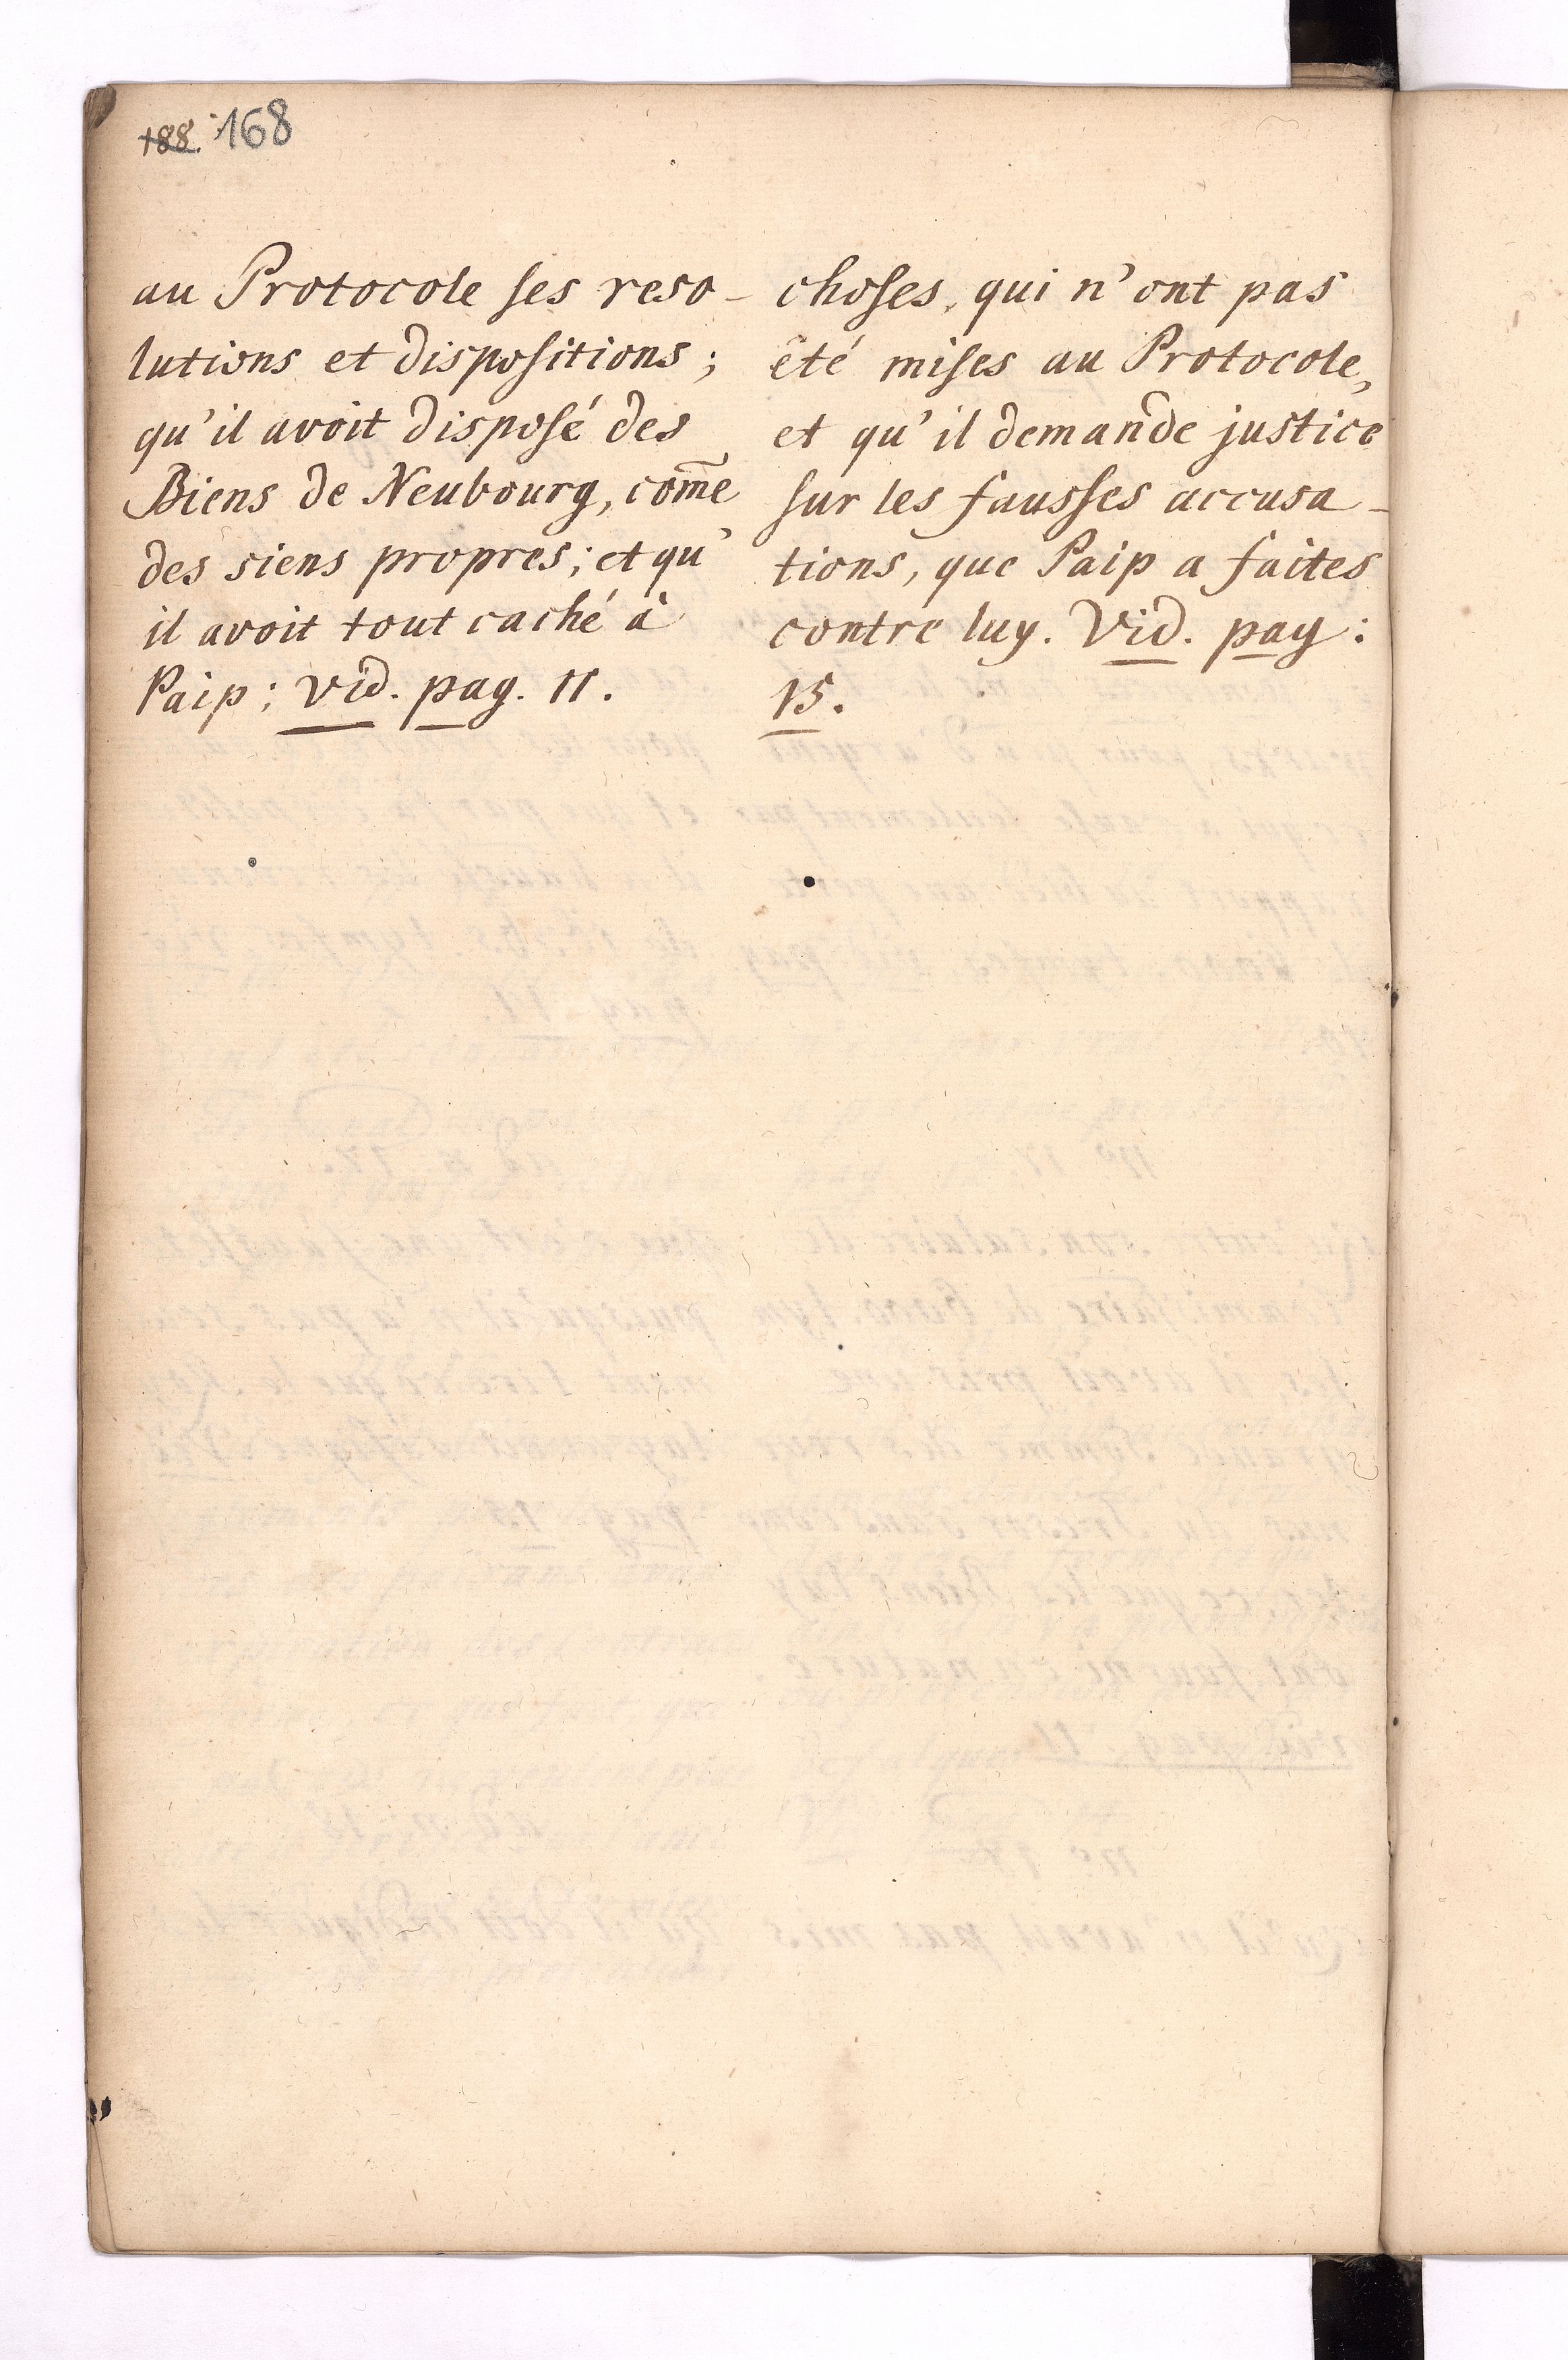 188. 168
au Protocole ses reso-
lutions et dispositions;
qu'il avoit disposé des
Biens de Neubourg, com̄e
des siens propres; et qu'
il avoit tout caché à
Paip; vid. pag. 11.
choses, qui n'ont pas
êté mises au Protocole,
et qu'il demande justice
sur les fausses accusa-
tions, que Paip a faites
contre luy. Vid. pag:
15.